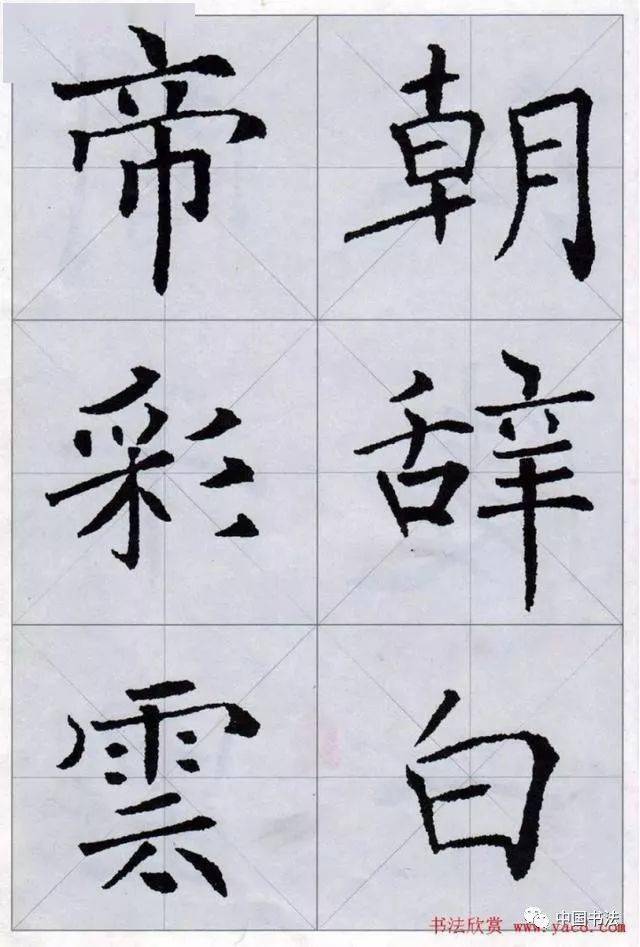 朝辞白
帝彩雲
书法欣赏 www.yac8.com
中国书法